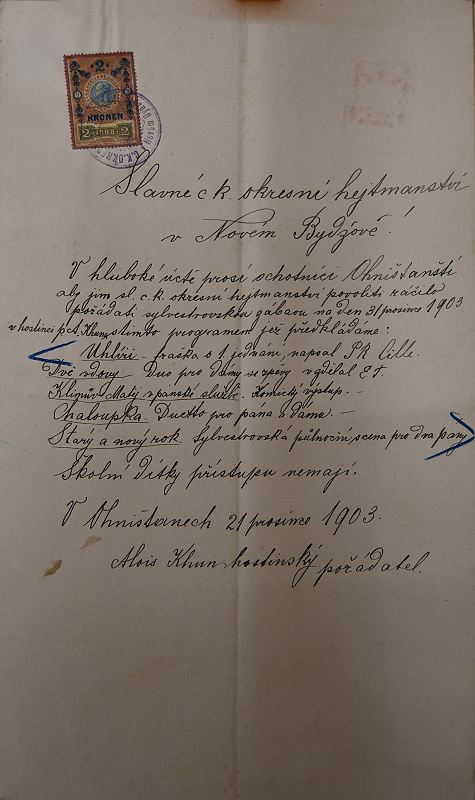 2
KRONEN
2 1898 2
C.K. OKRES
Slavné c k. okresní hejtmanství
v Novém Bydžově!
V hluboké úctě prosí ochotníci Ohništanští
aby jim sl. c. k. okresní hejtmanství povoliti ráčilo
pořádati sylvestrovskou zábavu na den 31 prosince 1903
v hostinci p. A. Khuna s tímto programem jež předkládáme:
Uhlíři - fraška o 1 jednání, napsal
Dvě vdovy Duo pro dámy se zpěvy vzdělal E. Š.
Klimův Matýs v panské službě. Komický výstup. -
Chaloupka. Duetto pro pána a dámu. -
Starý a nový rok. Sylvestrovská půlnoční scena pro dva pány
Školní dítky přístupu nemají.
V Ohništanech 21 prosince 1903.
Alois Khun hostinský pořádatel.